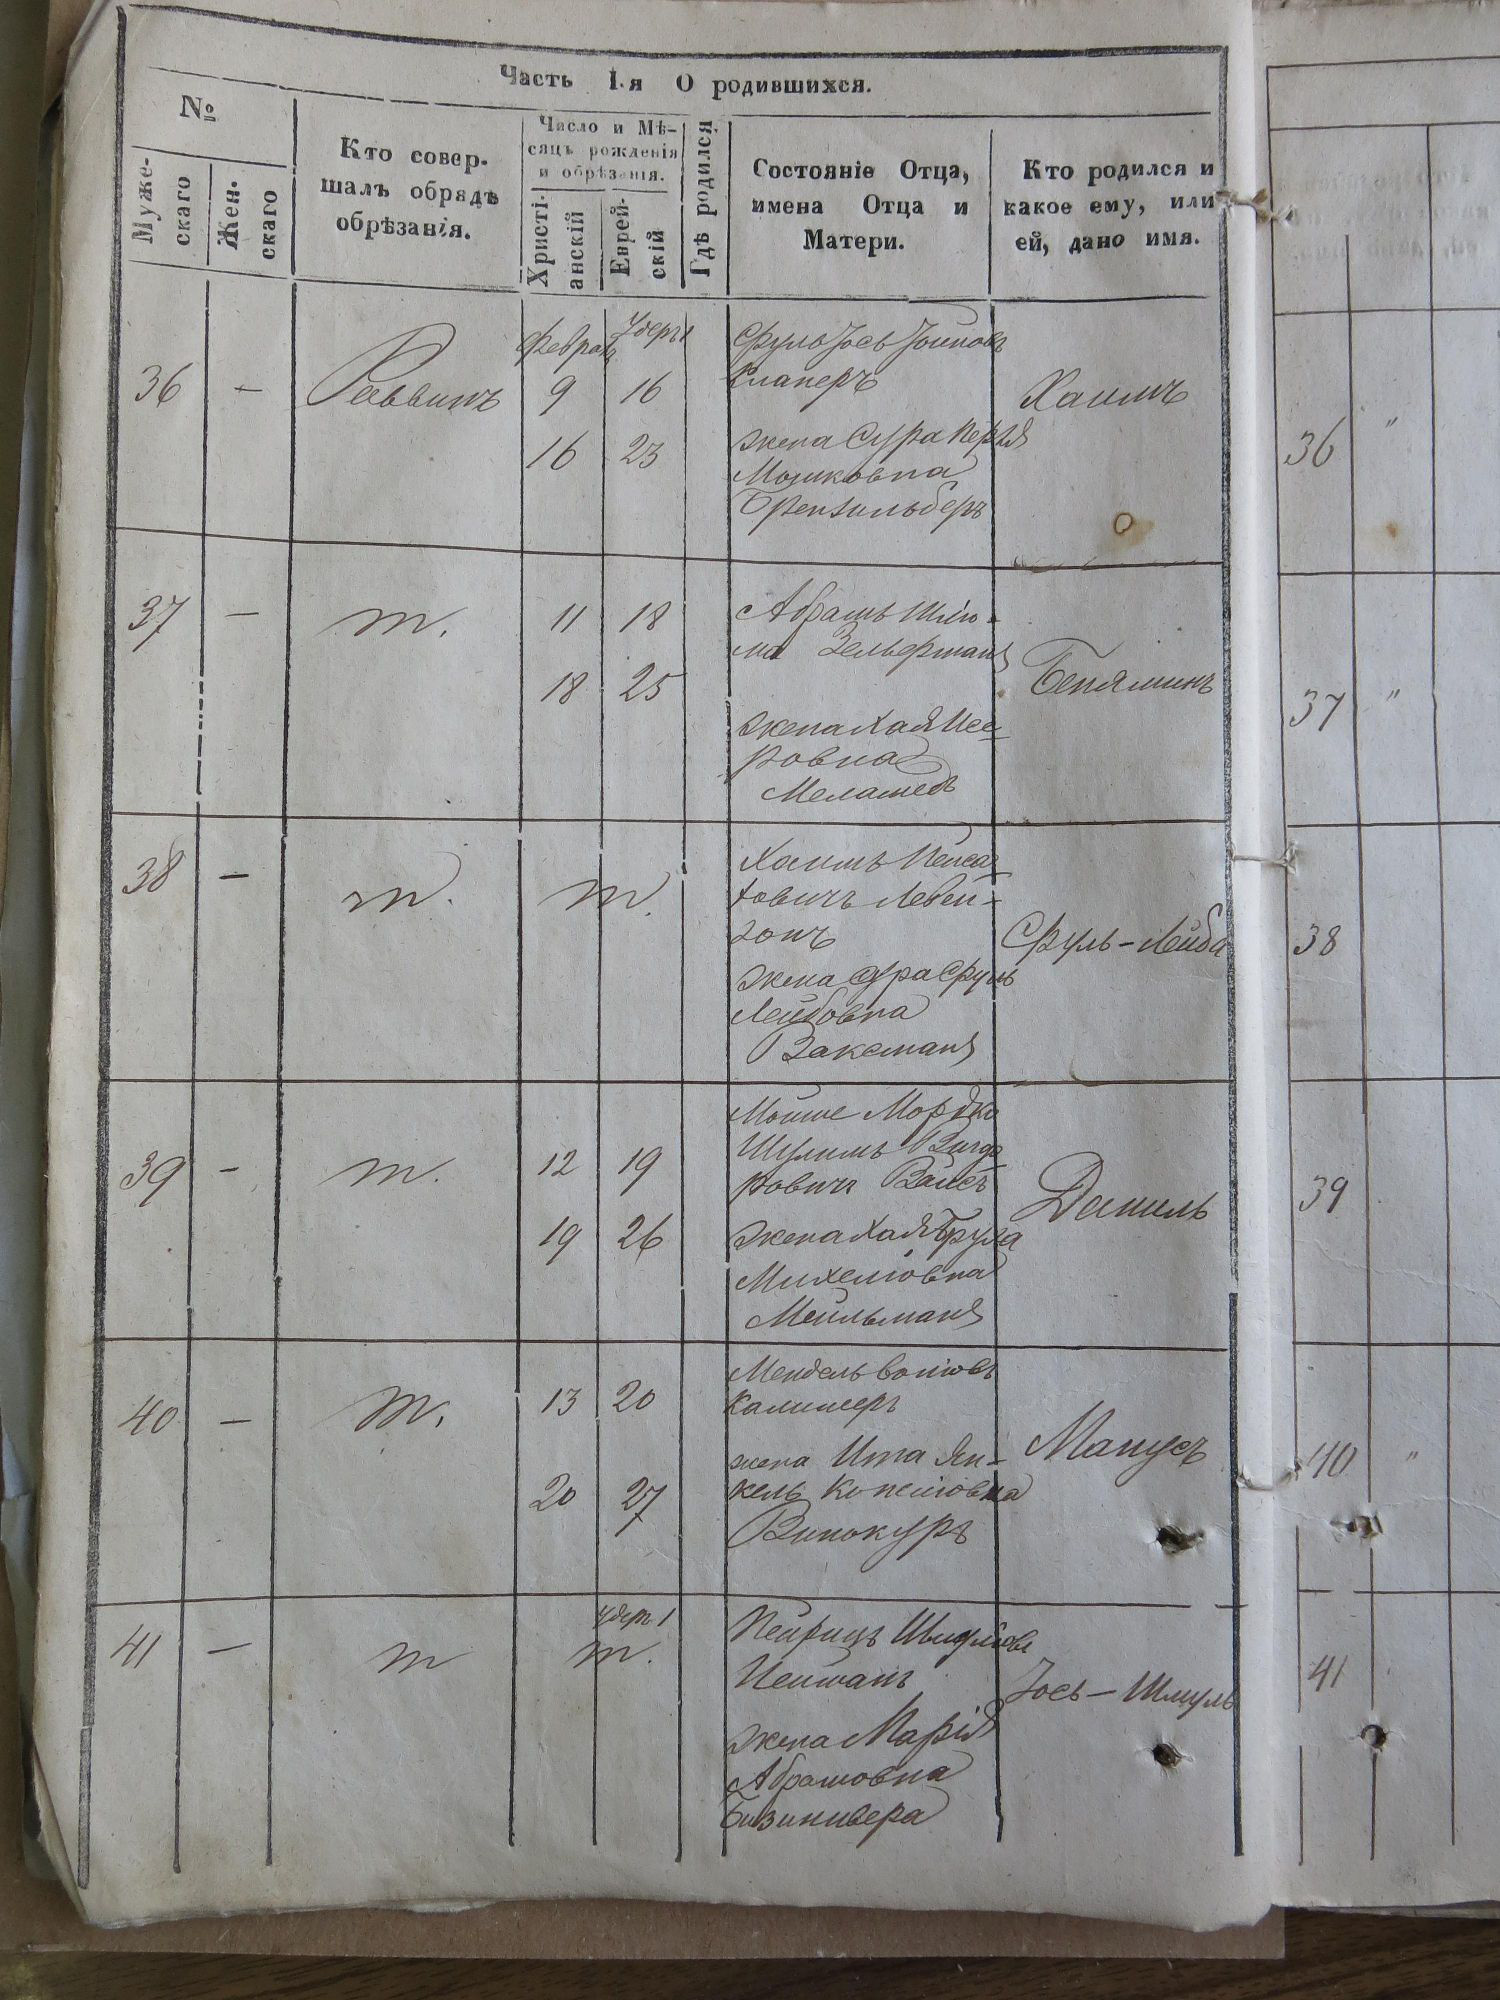 Часть I.я О родившихся.
№
Муже-
скаго
Жен.
скаго
Кто совер-
шалъ обрядъ
обрѣзанія.
Число и Мѣ-
сяцъ рожденія
и обрѣзанія.
Христі-
анскій
Еврей-
скій
Гдѣ родился
Состояніе Отца,
имена Отца и
Матери.
Кто родился и
какое ему, или
ей, дано имя.
36 —
Раввинъ
9 16
16 23
Клаперъ
жена Сура Перля
Мошковна
Хаимъ
36 "
37 —
т.
11 18
18 25
Абрамъ Шлио-
ма Зельерман
жена Хая Иее-
ровна
Меламедъ
Бенямин
37 "
38 —
т. т.
Хаимъ Пейса-
ховичъ Левен-
зонъ
жена Сура Сруль
Лейбовна
Ваксман
Сруль-Лейба
38
39 —
т.
12 19
19 26
Мойше Мордко
Шулимъ Вигдо
ровичъ Вайсъ
жена Хая Бруха
Михелювна
Мейльман
Даниль
39
40 —
т.
13 20
20 27
Мендель Волков
Калишеръ
жена Ита Ян-
кель Копелювна
Винокуръ
Манусъ
40 "
41 —
т т.
Нейман
жена Марія
Абрамовна
Іось-Шмуль
41